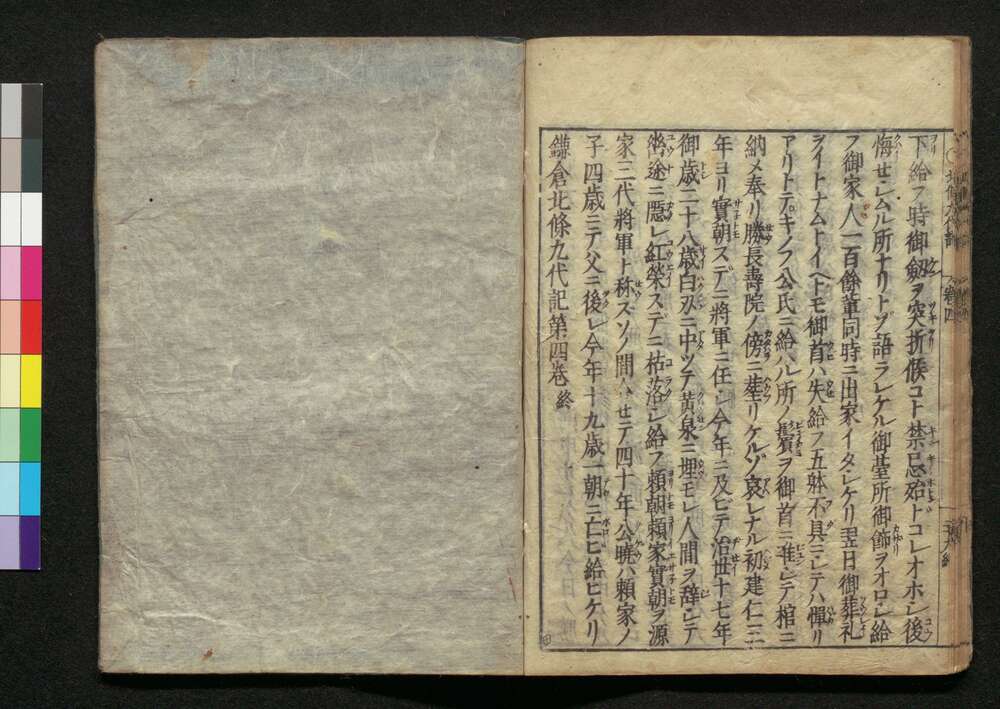 下給フ時御劔ヲ突折候コト禁忌殆トコレオホシ後
悔セシムル所ナリトゾ語ラレケル御臺所御飾ヲオロシ給
フ御家人一百餘輩同時ニ出家イタシケリ翌日御葬礼
ヲイトナムトイヘトモ御首ハ失給フ五躰不具ニシテハ憚リ
アリトテキノフ公氏ニ給ハル所ノ鬢ヲ御首ニ准シテ棺ニ
納メ奉リ勝長壽院ノ傍ニ葬リケルゾ哀レナル初建仁三
年ヨリ實朝スデニ將軍ニ任シ今年ニ及ビテ治世十七年
御歳二十八歳白刃ニ中ツテ黄泉ニ埋モレ人間ヲ辞シテ
幽途ニ隠レ紅榮スデニ枯落シ給フ頼朝頼家實朝ヲ源
家三代將軍ト称スソノ間ハセテ四十年公暁ハ頼家ノ
子四歳ニテ父ニ後レ今年十九歳一朝ニ亡ビ給ヒケリ
鎌倉北條九代記第四巻終